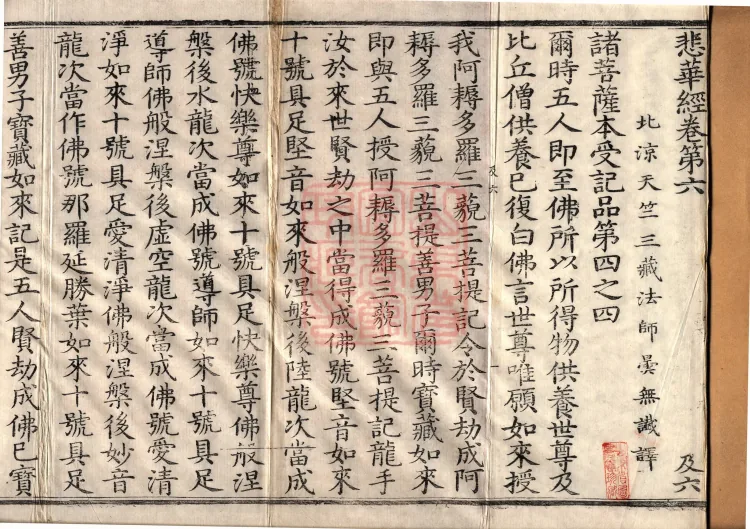 悲華經卷第六
及六
北涼天竺三藏法師曇無讖譯
諸菩薩本受記品第四之四
爾時五人即至佛所以所得物供養世尊及
比丘僧供養已復白佛言世尊唯願如來授
及六
我阿耨多羅三藐三菩提記令於賢劫成阿
耨多羅三藐三菩提善男子爾時寶藏如來
即與五人授阿耨多羅三藐三菩提記龍手
汝於來世賢劫之中當得成佛號堅音如來
十號具足堅音如來般涅槃後陸龍次當成
佛號快樂尊如來十號具足快樂尊佛般涅
槃後水龍次當成佛號導師如來十號具足
導師佛般涅槃後虛空龍次當成佛號愛清
淨如來十號具足愛清淨佛般涅槃後妙音
龍次當作佛號那羅延勝葉如來十號具足
善男子寶藏如來記是五人賢劫成佛已寶